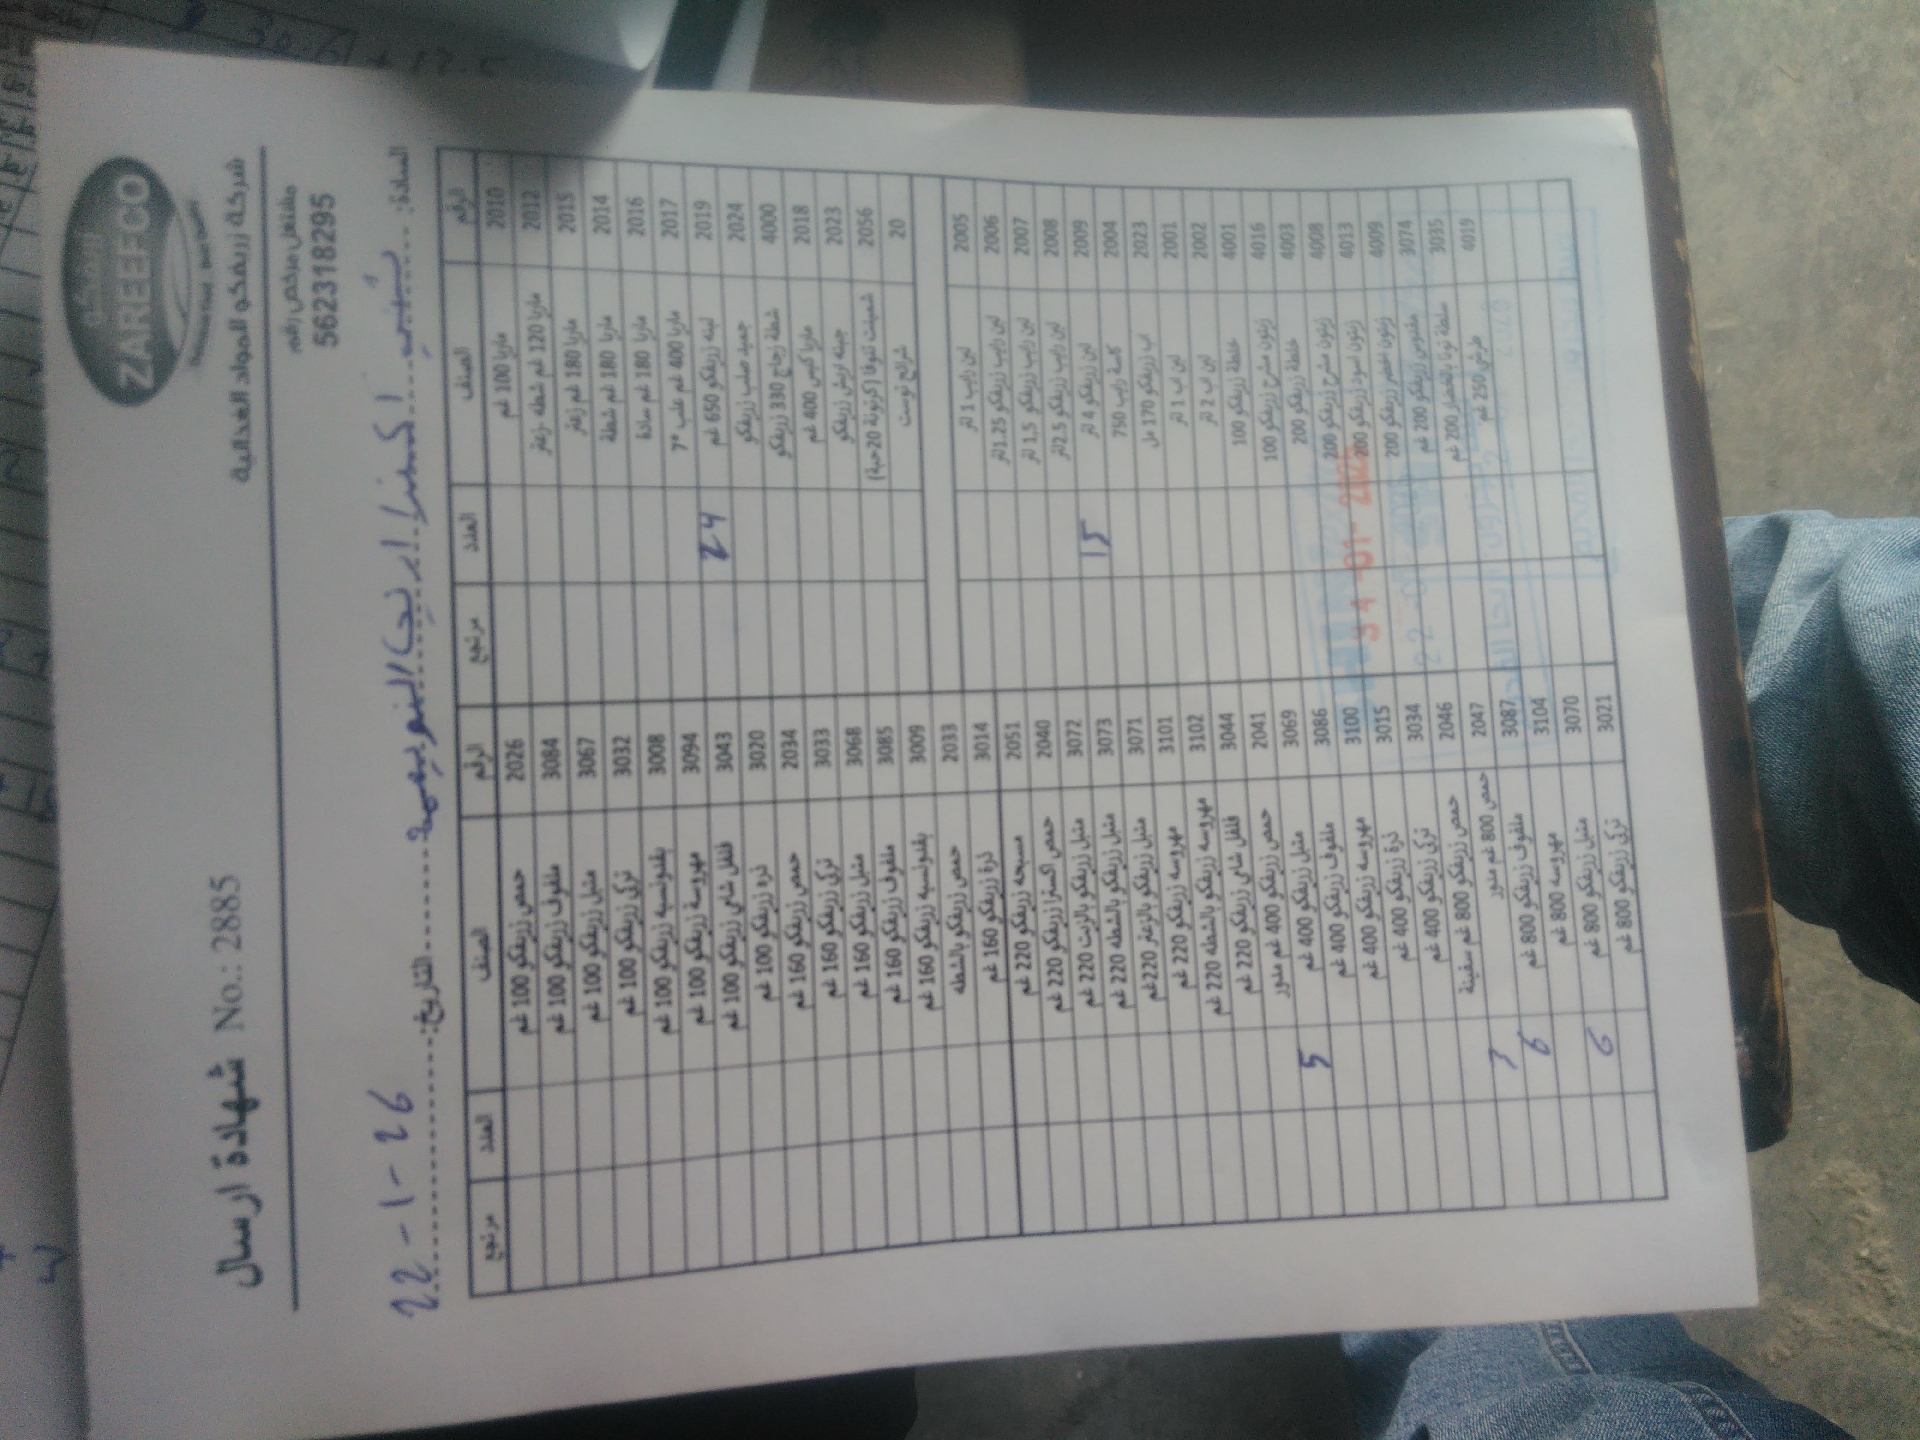 زريفكو
ZAREEFCO
شركة زريفكو للمواد الغذائية
مشتغل مرخص رقم
562318295
شهادة ارسال No.: 2885
السادة: التاريخ: 22-1-26
الرقم الصنف العدد مرتجع الرقم الصنف العدد مرتجع
2010 ماريا 100 غم 2026 حمص زريفكو 100 غم
2012 ماريا 120 غم شطة -زعتر 3084 ملفوف زريفكو 100 غم
2015 ماريا 180 غم زعتر 3067 متبل زريفكو 100 غم
2014 ماريا 180 غم شطة 3032 تركي زريفكو 100 غم
2016 ماريا 180 غم سادة 3008 بقدونسيه زريفكو 100 غم
2017 ماريا 400 غم علب 7° 3094 مهروسة زريفكو 100 غم
2019 لبنه زريفكو 650 غم 24 3043 فلفل شامي زريفكو 100 غم
2024 جميد صلب زريفكو 3020 ذره زريفكو 100 غم
4000 شطة زجاج 330 زريفكو 2034 حمص زريفكو 160 غم
2018 ماريا كيس 400 غم 3033 تركي زريفكو 160 غم
2023 جبنه قريش زريفكو 3068 متبل زريفكو 160 غم
2056 شمينت تنوفا (كرتونة 20حبة) 3085 ملفوف زريفكو 160 غم
20 شرائح توست 3009 بقدونسيه زريفكو 160 غم
2033 حمص زريفكو بالشطه
2005 لبن رايب 1 لتر 3014 ذرة زريفكو 160 غم
2006 لبن رايب زريفكو 1.25لتر 2051 مسبحه زريفكو 220 غم
2007 لبن رايب زريفكو 1,5 لتر 2040 حمص اكسترا زريفكو 220 غم
2008 لبن رايب زريفكو 2.5لتر 3072 متبل زريفكو بالزيت 220 غم
2009 لبن زريفكو 4 لتر 15 3073 متبل زريفكو بالشطه 220 غم
2004 كاسة رايب 750 3071 متبل زريفكو بالزعتر 220غم
2023 اب زريفكو 170 مل 3101 مهروسه زريفكو 220 غم
2001 لبن اب 1 لتر 3102 مهروسه زريفكو بالشطه 220 غم
2002 لبن اب 2 لتر 3044 فلفل شامي زريفكو 220 غم
4001 خلطة زريفكو 100 2041 حمص زريفكو 400 غم مدور
4016 زيتون مشرح زريفكو 100 3069 متبل زريفكو 400 غم 5
4003 خلطة زريفكو 200 3086 ملفوف زريفكو 400 غم
4008 زيتون مشرح زريفكو 200 3100 مهروسه زريفكو 400 غم
4013 زيتون اسود زريفكو 200 3015 ذرة زريفكو 400 غم
4009 زيتون اخضر زريفكو 200 3034 تركي زريفكو 400 غم
3074 مغدوس زريفكو 200 غم 2046 حمص زريفكو 800 غم سفينة
3035 سلطة تونا بالخضار 200 غم 2047 حمص 800 غم مدور
4019 طرشي 250 غم 3087 ملفوف زريفكو 800 غم 6
3104 مهروسه 800 غم
3070 متبل زريفكو 800 غم 6
3021 تركي زريفكو 800 غم